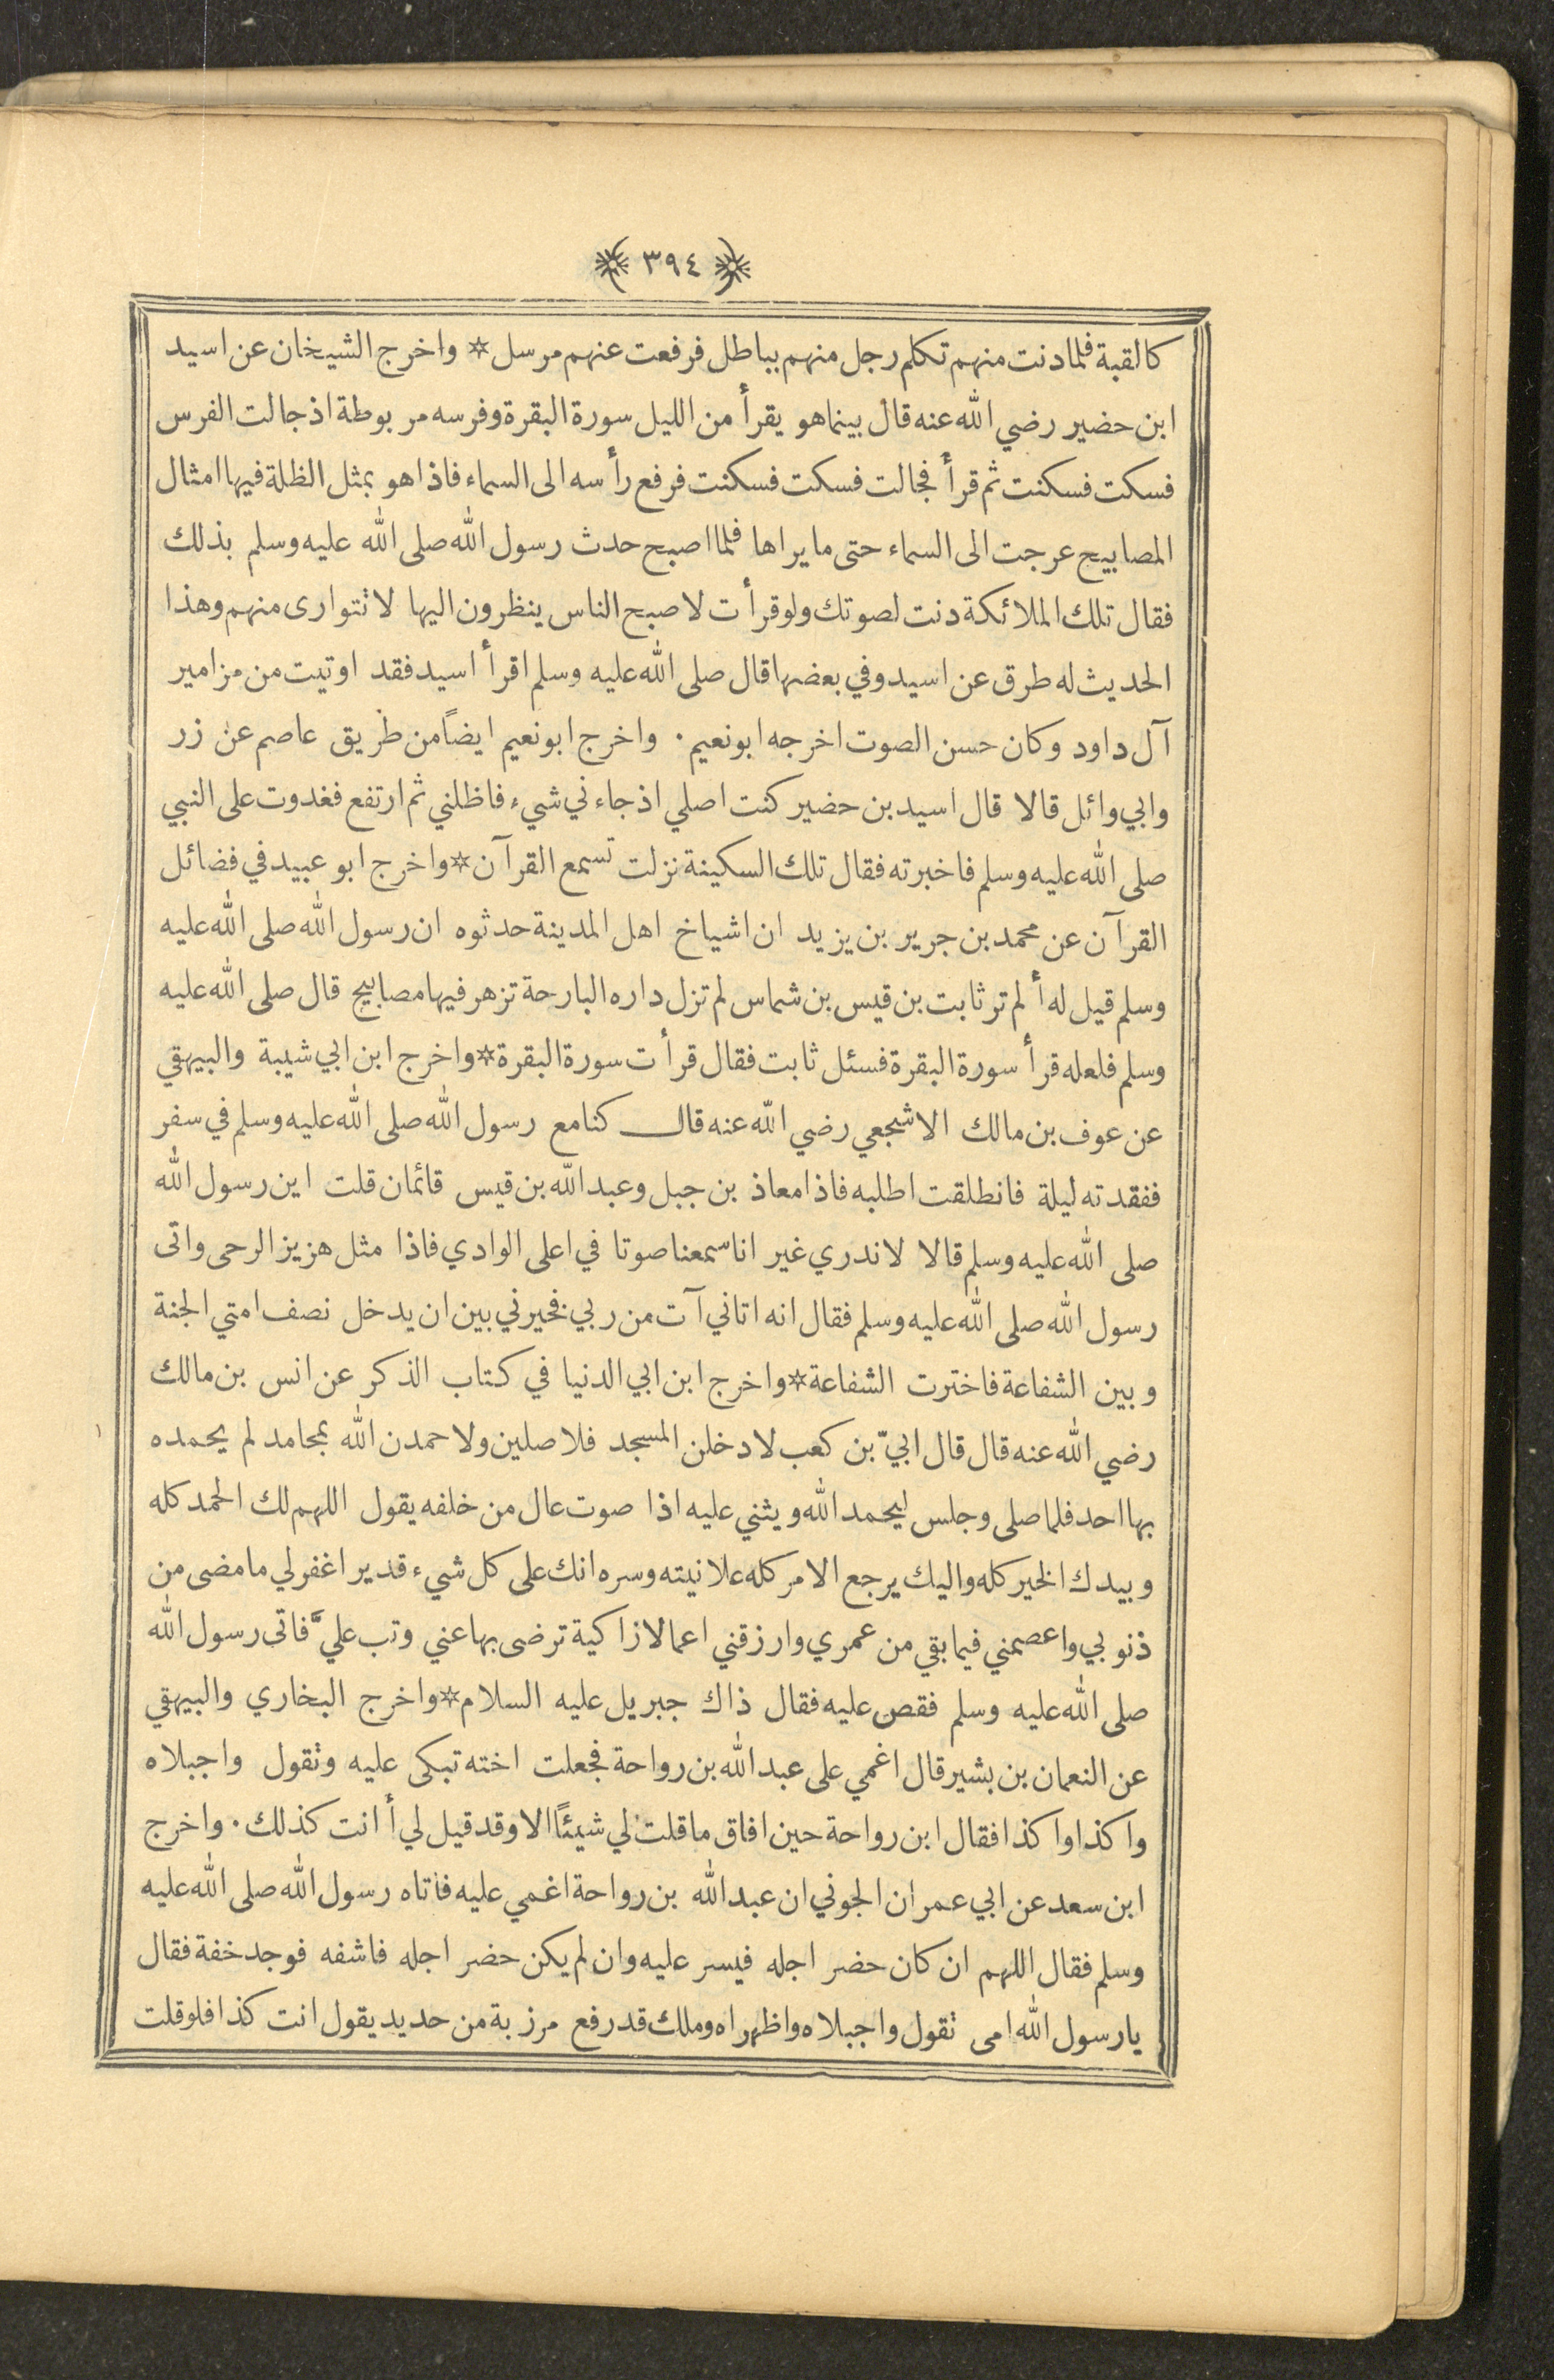 ﴿ ٣٩٤ ﴾
كالقبة فلما دنت منهم تكلم رجل منهم بباطل فرفعت عنهم مرسل * واخرج الشيخان عن اسيد
ابن حضير رضي الله عنه قال بينما هو يقرأ من الليل سورة البقرة وفرسه مربوطة اذ جالت الفرس
فسكت فسكنت ثم قرأ فجالت فسكت فسكنت فرفع رأسه الى السماء فاذا هو بمثل الظلة فيها امثال
المصابيح عرجت الى السماء حتى ما يراها فلما اصبح حدث رسول الله صلى الله عليه وسلم بذلك
فقال تلك الملائكة دنت لصوتك ولو قرأت لاصبح الناس ينظرون اليها لا تتوارى منهم وهذا
الحديث له طرق عن اسيد وفي بعضها قال صلى الله عليه وسلم اقرأ اسيد فقد اوتيت من مزامير
آل داود وكان حسن الصوت اخرجه ابو نعيم . واخرج ابو نعيم ايضاً من طريق عاصم عن زر
وابي وائل قالا قال اسيد بن حضير كنت اصلي اذ جاءني شيء فاظلني ثم ارتفع فغدوت على النبي
صلى الله عليه وسلم فاخبرته فقال تلك السكينة نزلت تسمع القرآن * واخرج ابو عبيد في فضائل
القرآن عن محمد بن جرير بن يزيد ان اشياخ اهل المدينة حدثوه ان رسول الله صلى الله عليه
وسلم قيل له ألم تر ثابت بن قيس بن شماس لم تزل داره البارحة تزهر فيها مصابيح قال صلى الله عليه
وسلم فلعله قرأ سورة البقرة فسئل ثابت فقال قرأت سورة البقرة * واخرج ابن ابي شيبة والبيهقي
عن عوف بن مالك الاشجعي رضي الله عنه قال كنا مع رسول الله صلى الله عليه وسلم في سفر
ففقدته ليلة فانطلقت اطلبه فاذا معاذ بن جبل وعبد الله بن قيس قائمان قلت اين رسول الله
صلى الله عليه وسلم قالا لا ندري غير انا سمعنا صوتا في اعلى الوادي فاذا مثل هزيز الرحى واتى
رسول الله صلى الله عليه وسلم فقال انه اتاني آت من ربي فخيرني بين ان يدخل نصف امتي الجنة
وبين الشفاعة فاخترت الشفاعة * واخرج ابن ابي الدنيا في كتاب الذكر عن انس بن مالك
رضي الله عنه قال قال ابيّ بن كعب لادخلن المسجد فلاصلين ولاحمدن الله بمحامد لم يحمده
بها احد فلما صلى وجلس ليحمد الله ويثني عليه اذا صوت عال من خلفه يقول اللهم لك الحمد كله
وبيدك الخير كله واليك يرجع الامر كله علانيته وسره انك على كل شيء قدير اغفر لي ما مضى من
ذنوبي واعصمني فيما بقي من عمري وارزقني اعمالا زاكية ترضى بها عني وتب عليَّ فاتى رسول الله
صلى الله عليه وسلم فقص عليه فقال ذاك جبريل عليه السلام * واخرج البخاري والبيهقي
عن النعمان بن بشير قال اغمي على عبد الله بن رواحة فجعلت اخته تبكى عليه وتقول واجبلاه
واكذا واكذا فقال ابن رواحة حين افاق ما قلت لي شيئاً الا وقد قيل لي أانت كذلك . واخرج
ابن سعد عن ابي عمران الجوني ان عبد الله بن رواحة اغمي عليه فاتاه رسول الله صلى الله عليه
وسلم فقال اللهم ان كان حضر اجله فيسر عليه وان لم يكن حضر اجله فاشفه فوجد خفة فقال
يا رسول الله امى تقول واجبلاه واظهراه وملك قد رفع مرزبة من حديد يقول انت كذا فلو قلت